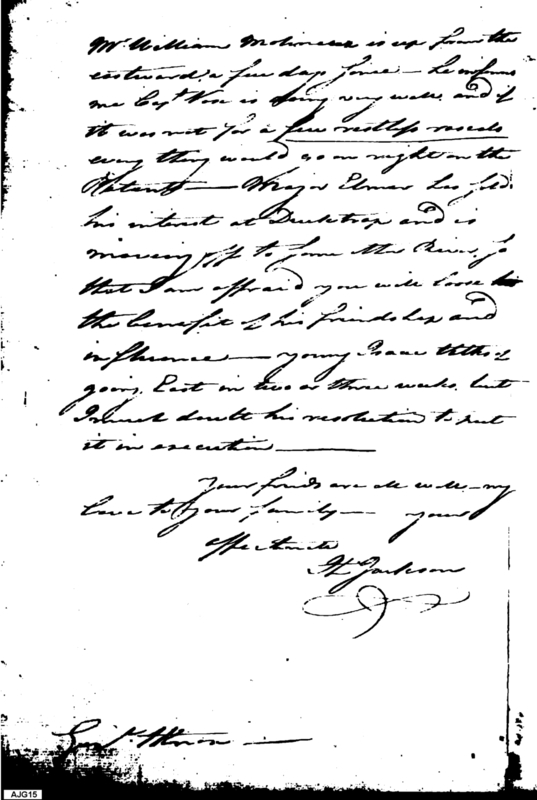 Mr. William Molineux is up from the
eastward a few days since — he informs
me Capt Vose is doing very well and if
it was not for a few restless rascals
every thing would go on right on the
Patent — Major Elmer has sold
his interest at Ducktrap and is
moving off to some other River, so
that I am affraid you will loose
the benefit of his friendship and
influence — young Isaac talks of
going East in two or three weeks, but
I much doubt his resolution to put
it in execution —
Your friends are all well — my
love to your family — your
affectionate
H Jackson
Genl. Knox —
AJG15